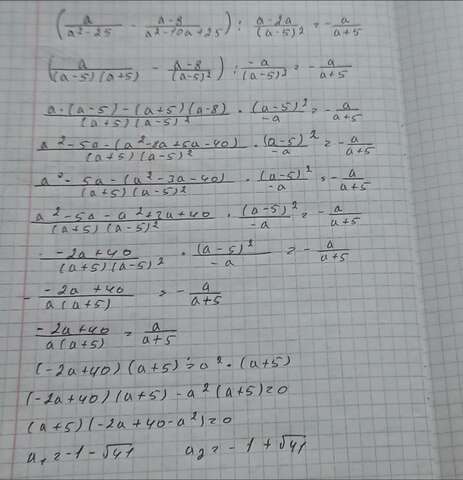 (a/(a²-25) - (a-8)/(a²-10a+25)) : (a-2a)/(a-5)² = -a/(a+5)
(a/((a-5)(a+5)) - (a-8)/(a-5)²) : -a/(a-5)² = -a/(a+5)
(a·(a-5)-(a+5)(a-8))/((a+5)(a-5)²) · (a-5)²/-a = -a/(a+5)
(a²-5a-(a²-8a+5a-40))/((a+5)(a-5)²) · (a-5)²/-a = -a/(a+5)
(a²-5a-(a²-3a-40))/((a+5)(a-5)²) · (a-5)²/-a = -a/(a+5)
(a²-5a-a²+3a+40)/((a+5)(a-5)²) · (a-5)²/-a = -a/(a+5)
(-2a+40)/((a+5)(a-5)²) · (a-5)²/-a = -a/(a+5)
- (-2a+40)/(a(a+5)) = -a/(a+5)
(-2a+40)/(a(a+5)) = a/(a+5)
(-2a+40)(a+5)=a²·(a+5)
(-2a+40)(a+5)-a²(a+5)=0
(a+5)(-2a+40-a²)=0
a₁=-1-√41 a₂=-1+√41